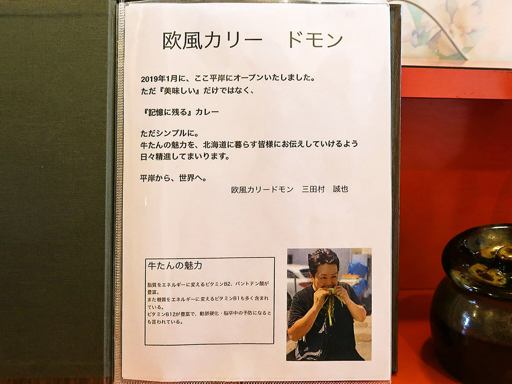 欧風カリー　ドモン
2019年1月に、ここ平岸にオープンいたしました。
ただ『美味しい』だけではなく、
『記憶に残る』カレー
ただシンプルに。
牛たんの魅力を、北海道に暮らす皆様にお伝えしていけるよう
日々精進してまいります。
平岸から、世界へ。
欧風カリードモン　三田村　誠也
牛たんの魅力
脂質をエネルギーに変えるビタミンB2、パントテン酸が
豊富。
また糖質をエネルギーに変えるビタミンB1も多く含まれ
ている。
ビタミンB12が豊富で、動脈硬化・脳卒中の予防になると
も言われている。